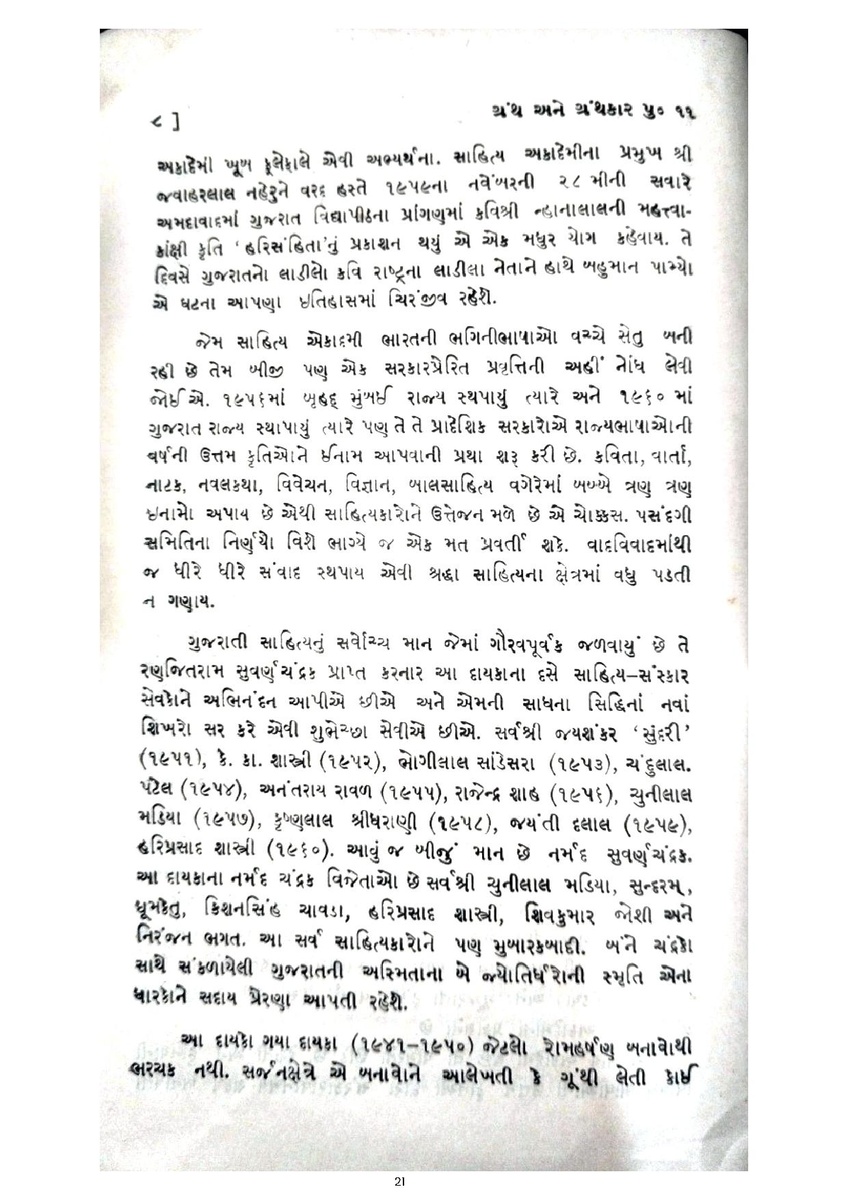 ૮ ]
ગ્રંથ અને ગ્રંથકાર પુ૦ ૧૧
અકાદેમી ખૂબ ફૂલેફાલે એવી અભ્યર્થના. સાહિત્ય અકાદેમીના પ્રમુખ શ્રી
જવાહરલાલ નહેરુને વરદ હસ્તે ૧૯૫૯ના નવેંબરની ૨૮ મીની સવારે
અમદાવાદમાં ગુજરાત વિદ્યાપીઠના પ્રાંગણમાં કવિશ્રી ન્હાનાલાલની મહત્ત્વા-
કાંક્ષી કૃતિ ‘હરિસંહિતા’નું પ્રકાશન થયું એ એક મધુર યોગ કહેવાય. તે
દિવસે ગુજરાતનો લાડીલો કવિ રાષ્ટ્રના લાડીલા નેતાને હાથે બહુમાન પામ્યો
એ ઘટના આપણા ઇતિહાસમાં ચિરંજીવ રહેશે.
જેમ સાહિત્ય એકાદમી ભારતની ભગિનીભાષાઓ વચ્ચે સેતુ બની
રહી છે તેમ બીજી પણ એક સરકારપ્રેરિત પ્રવૃત્તિની અહીં નોંધ લેવી
જોઈએ. ૧૯૫૬માં બૃહદ્ મુંબઈ રાજ્ય સ્થપાયું ત્યારે અને ૧૯૬૦ માં
ગુજરાત રાજ્ય સ્થાપાયું ત્યારે પણ તે તે પ્રાદેશિક સરકારોએ રાજ્યભાષાઓની
વર્ષની ઉત્તમ કૃતિઓને ઈનામ આપવાની પ્રથા શરૂ કરી છે. કવિતા, વાર્તા,
નાટક, નવલકથા, વિવેચન, વિજ્ઞાન, બાલસાહિત્ય વગેરેમાં બબ્બે ત્રણ ત્રણ
ઇનામો અપાય છે એથી સાહિત્યકારોને ઉત્તેજન મળે છે એ ચોક્કસ. પસંદગી
સમિતિના નિર્ણયો વિશે ભાગ્યે જ એક મત પ્રવર્તી શકે. વાદવિવાદમાંથી
જ ધીરે ધીરે સંવાદ સ્થપાય એવી શ્રદ્ધા સાહિત્યના ક્ષેત્રમાં વધુ પડતી
ન ગણાય.
ગુજરાતી સાહિત્યનું સર્વોચ્ચ માન જેમાં ગૌરવપૂર્વક જળવાયું છે તે
રણજિતરામ સુવર્ણચંદ્રક પ્રાપ્ત કરનાર આ દાયકાના દસે સાહિત્ય–સંસ્કાર
સેવકોને અભિનંદન આપીએ છીએ અને એમની સાધના સિદ્ધિનાં નવાં
શિખરો સર કરે એવી શુભેચ્છા સેવીએ છીએ. સર્વશ્રી જયશંકર ‘સુંદરી’
(૧૯૫૧), કે. કા. શાસ્ત્રી (૧૯૫૨), ભોગીલાલ સાંડેસરા (૧૯૫૩), ચંદુલાલ.
પટેલ (૧૯૫૪), અનંતરાય રાવળ (૧૯૫૫), રાજેન્દ્ર શાહ (૧૯૫૬), ચુનીલાલ
મડિયા (૧૯૫૭), કૃષ્ણલાલ શ્રીધરાણી (૧૯૫૮), જયંતી દલાલ (૧૯૫૯),
હરિપ્રસાદ શાસ્ત્રી (૧૯૬૦). આવું જ બીજું માન છે નર્મદ સુવર્ણચંદ્રક.
આ દાયકાના નર્મદ ચંદ્રક વિજેતાઓ છે સર્વશ્રી ચુનીલાલ મડિયા, સુન્દરમ્,
ધૂમકેતુ, કિશનસિંહ ચાવડા, હરિપ્રસાદ શાસ્ત્રી, શિવકુમાર જોશી અને
નિરંજન ભગત. આ સર્વ સાહિત્યકારોને પણ મુબારકબાદી. બંને ચંદ્રકો
સાથે સંકળાયેલી ગુજરાતની અસ્મિતાના બે જ્યોતિર્ધરોની સ્મૃતિ એના
ધારકોને સદાય પ્રેરણા આપતી રહેશે.
આ દાયકો ગયા દાયકા (૧૯૪૧–૧૯૫૦) જેટલો રોમહર્ષણ બનાવોથી
ભરચક નથી. સર્જનક્ષેત્રે એ બનાવોને આલેખતી કે ગૂંથી લેતી કોઈ
21